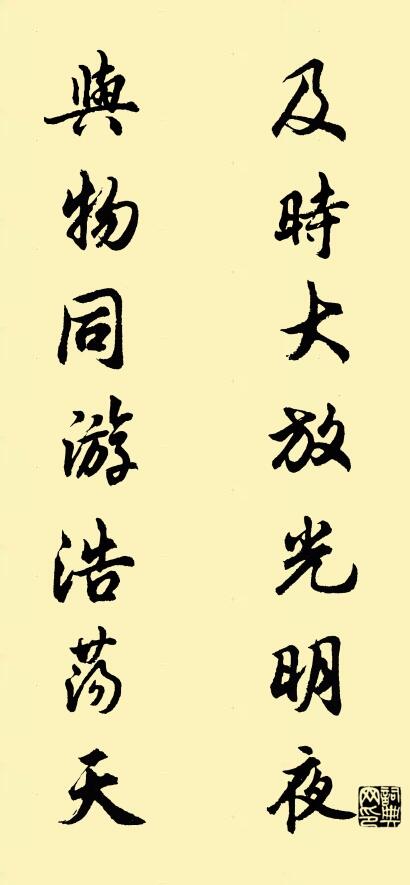 及時大放光明夜
與物同游浩荡天
詞典网印